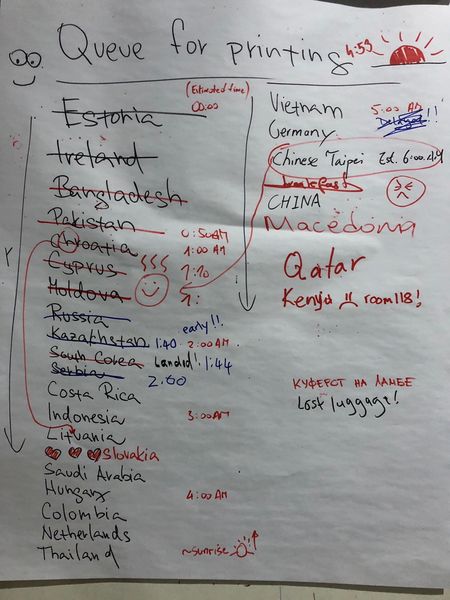 Queue for printing
4:59
(Estimated time)
00:00
Estonia
Ireland
Bangladesh
Pakistan 0:50AM
Chroatia 1:00 AM
Cyprus 1:10
Moldova 1:
Russia early!!
Kazahstan 1:40 2:00AM
South Corea Landid! 1:44
Serbia 2.00
Costa Rica
Indonesia 3:00AM
Lituania
Slovakia
Saudi Arabia
Hungary 4:00AM
Colombia
Netherlands
Thailand ~sunrise
Vietnam 5:00 AM
Germany Delayed!!
Chinese Taipei Est. 6:00 AM
breakfast
CHINA
Macedonia
Qatar
Kenya room 118!
КУФЕРОТ НА ЛАМБЕ
Lost luggage!